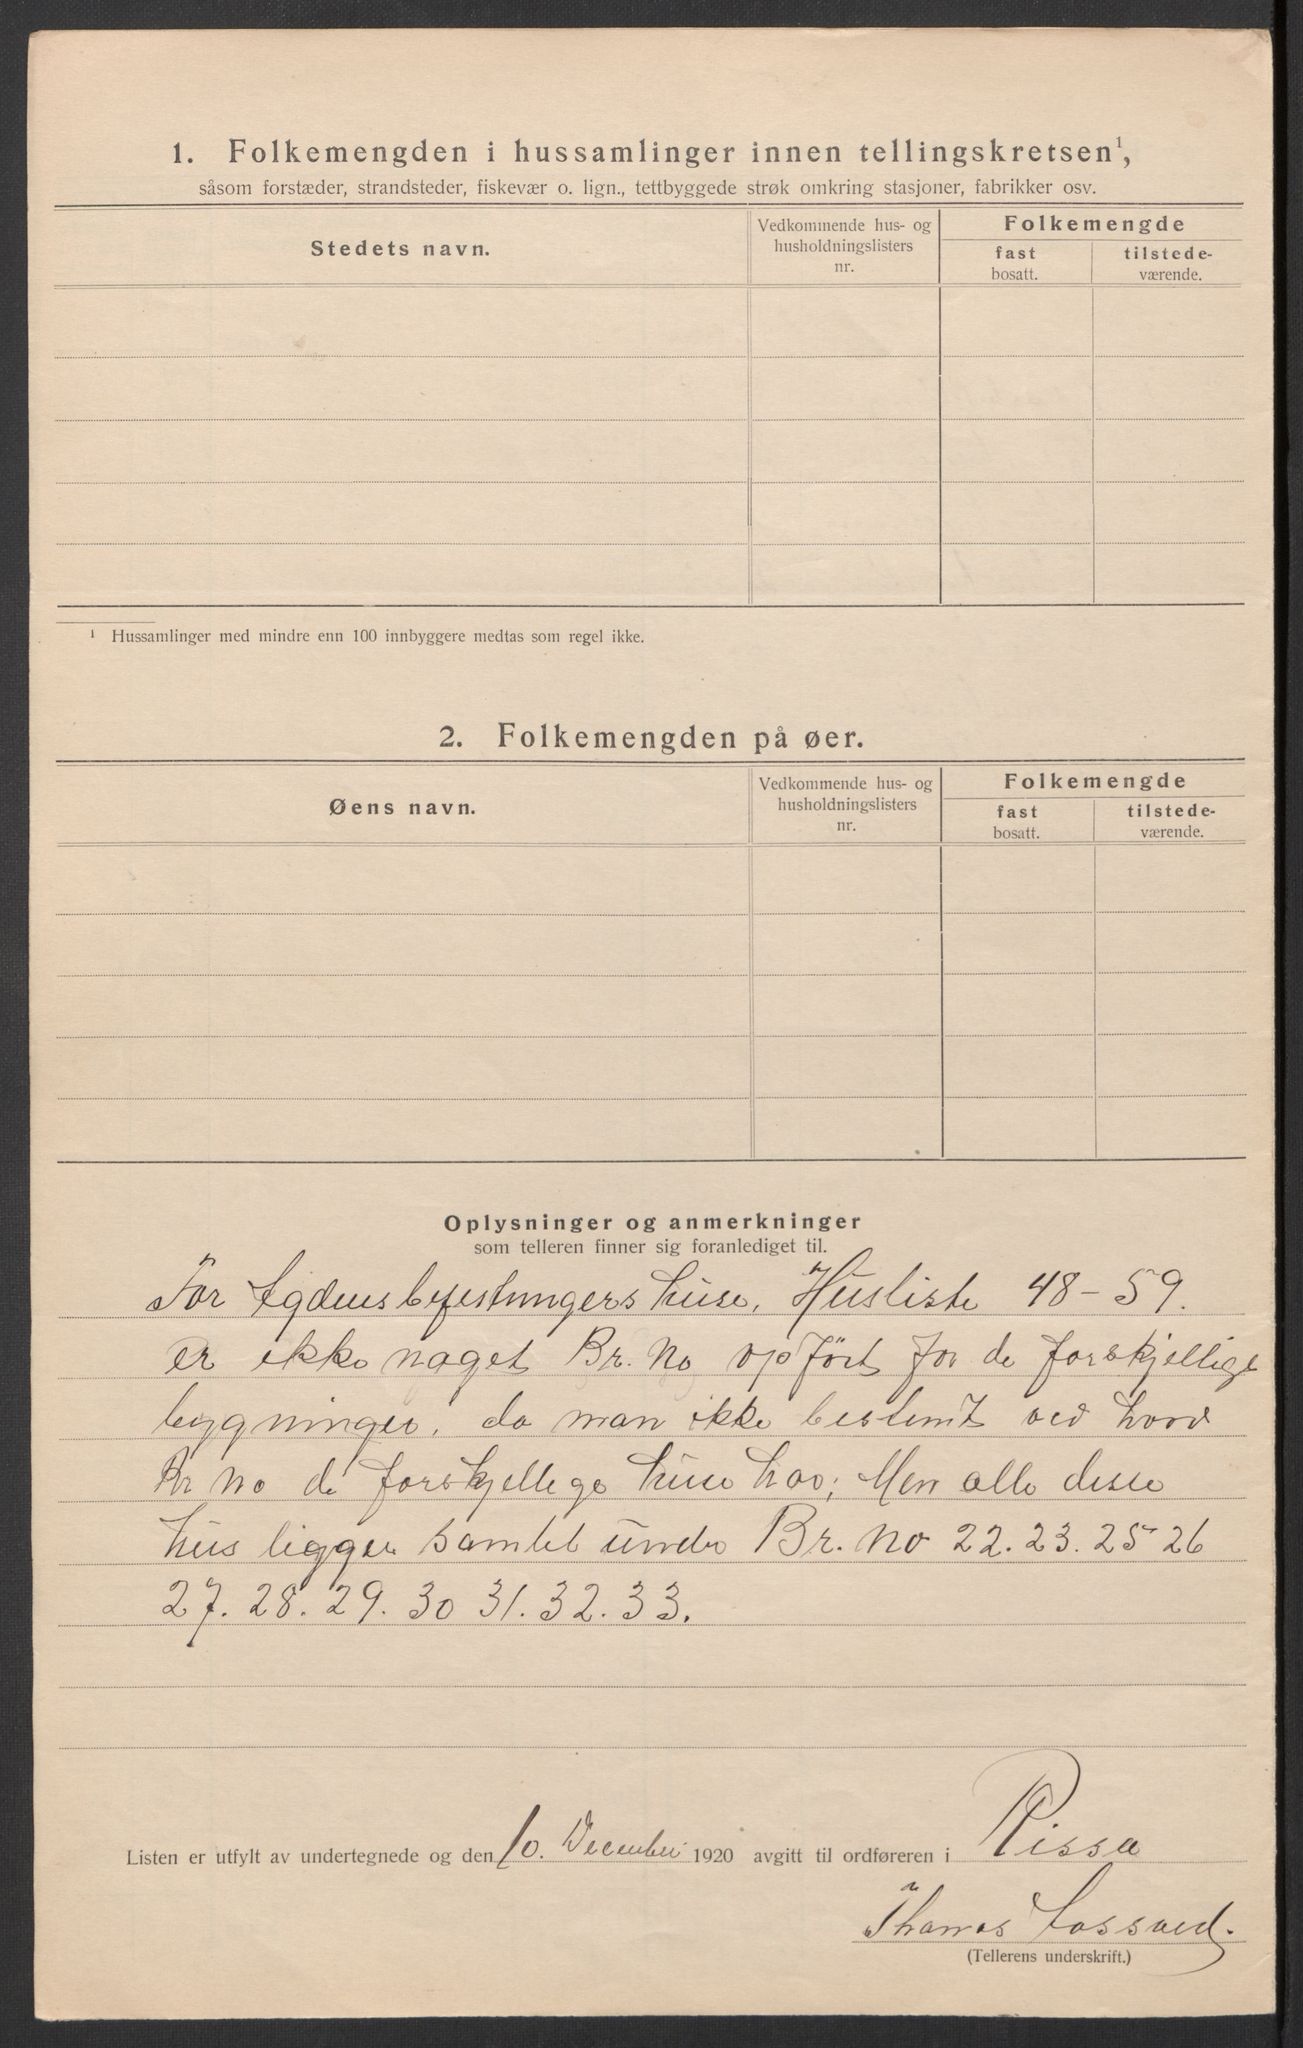 1. Folkemengden i hussamlinger innen tellingskretsen¹,
såsom forstæder, strandsteder, fiskevær o. lign., tettbyggede strøk omkring stasjoner, fabrikker osv.
Stedets navn.
Vedkommende hus- og
husholdningslisters
nr.
Folkemengde
fast
bosatt.
tilstede-
værende.
¹ Hussamlinger med mindre enn 100 innbyggere medtas som regel ikke.
2. Folkemengden på øer.
Øens navn.
Vedkommende hus- og
husholdningslisters
nr.
Folkemengde
fast
bosatt.
tilstede-
værende.
Oplysninger og anmerkninger
som telleren finner sig foranlediget til.
For Agdensbefestningers huse, Husliste 48-59.
er ikke noget Br. No opført for de forskjellige
bygninger, da man ikke bestemt ved hvad
Br No de forskjellige huse har; Men alle disse
hus ligger samlet under Br. No 22. 23. 25 26
27. 28. 29. 30 31. 32. 33.
Listen er utfylt av undertegnede og den 10. December 1920 avgitt til ordføreren i Rissa
Thomas
(Tellerens underskrift.)